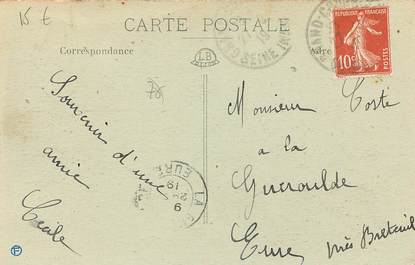 15 €
CARTE POSTALE
Correspondance
LB
Adre
RÉPUBLIQUE FRANÇAISE
10c
GRAND-C
SEINE INF
Souvenir
d'une
amie
Cécile
LA
EURE
9
19
Monsieur Coste
a la
Gueroulde
Eure près Breteuil